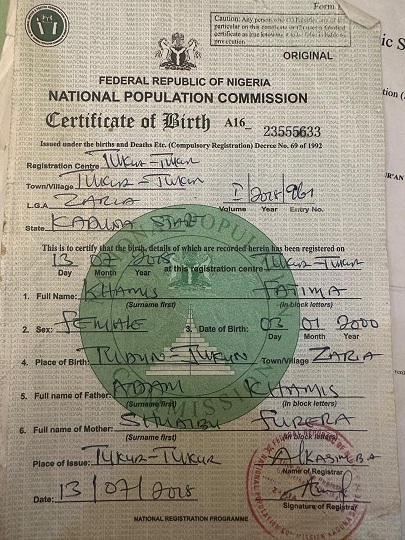 Form
Caution: Any person who (1) falsifies any of the
particular on this certificate or (2) uses a falsified
certificate as true knowing it to be false is liable to
prosecution
ORIGINAL
FEDERAL REPUBLIC OF NIGERIA
NATIONAL POPULATION COMMISSION
Certificate of Birth A16_ 23555633
Issued under the births and Deaths Etc. (Compulsory Registration) Decree No. 69 of 1992
Registration Centre TUKUR-TUKUR
Town/Village TUKUR-TUKUR
L.G.A ZARIA I/2018/961
Volume Year Entry No.
State KADUNA STATE
This is to certify that the birth, details of which are recorded herein has been registered on
13 07 2018 at this registration centre TUKUR-TUKUR
Day Month Year
1. Full Name: KHAMIS FATIMA
(Surname first) (In block letters)
2. Sex: FEMALE 3. Date of Birth: 03 01 2000
Day Month Year
4. Place of Birth: Town/Village ZARIA
5. Full name of Father: ADAM KHAMIS
(Surname first) (In block letters)
6. Full name of Mother: FURERA
(Surname first) (In block letters)
Place of Issue: TUKUR-TUKUR ALKASIM BA
Name of Registrar
Date: 13/07/2018
Signature of Registrar
NATIONAL REGISTRATION PROGRAMME